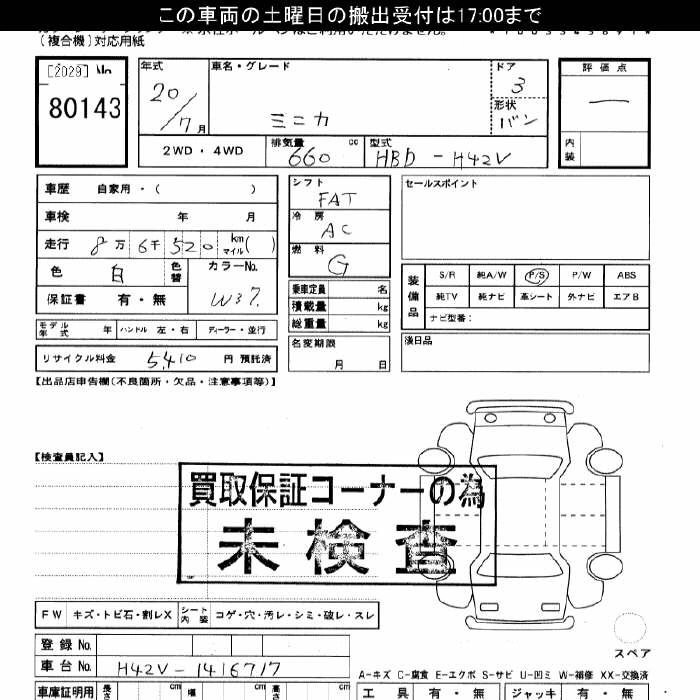 この車両の土曜日の搬出受付は17:00まで
(複合機)対応用紙
[2029] No
80143
年式
20/7月
車名・グレード
ミニカ
ドア
3
形状
バン
評価点
—
内装
2WD・4WD
排気量
660 cc
型式
HBD-H42V
車歴 自家用・( )
車検 年 月
走行 8万6千520 km マイル( )
色 白 色替
カラーNo.
W37.
保証書 有・無
モデル年式 年 ハンドル 左・右 ディーラー・並行
リサイクル料金 5,410 円 預託済
シフト
FAT
冷房
AC
燃料
G
乗車定員 名
積載量 kg
総重量 kg
名変期限
月 日
セールスポイント
装備品
S/R 純A/W P/S P/W ABS
純TV 純ナビ 革シート 外ナビ エアB
ナビ型番:
欠品
【出品店申告欄(不良箇所・欠品・注意事項等)】
【検査員記入】
買取保証コーナーの為
未検査
FW キズ・トビ石・割レX シート内装 コゲ・穴・汚レ・シミ・破レ・スレ
スペア
登録No.
車台No. H42V-1416717
A-キズ C-腐食 E-エクボ S-サビ U-凹ミ W-補修 XX-交換済
車庫証明用 長さ cm 幅 cm 高さ cm
工具 有・無 ジャッキ 有・無